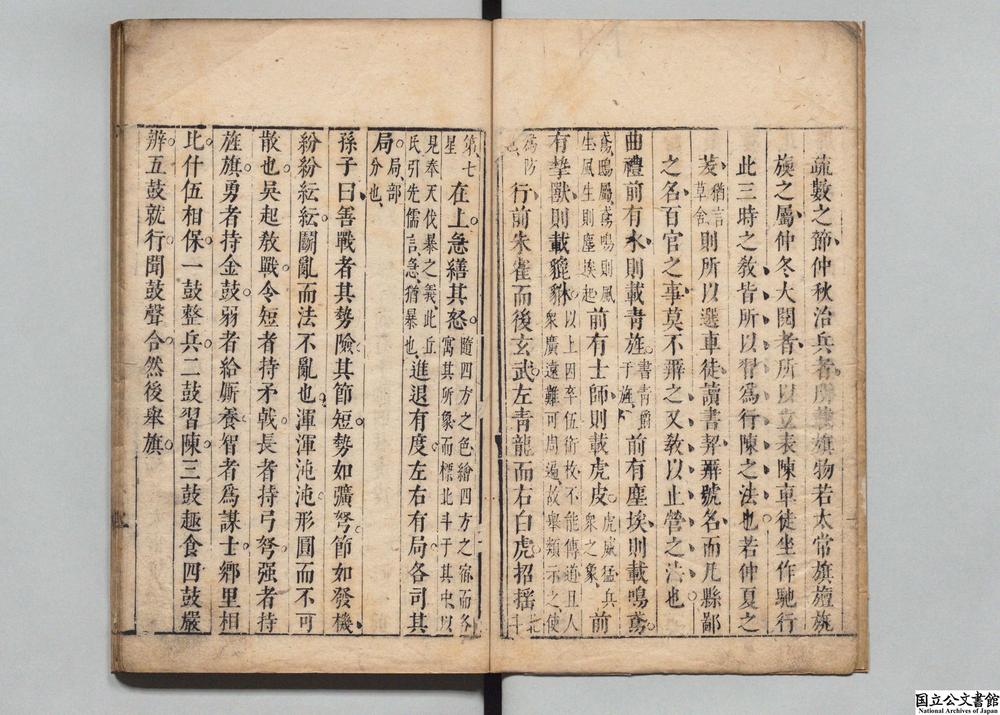 疏數之節仲秋治兵者所載旗物若太常旗旜旄
旟之屬仲冬大閱者所以立表陳車徒坐作馳行
此三時之教皆所以習爲行陳之法也若仲夏之
茇猶言草舍則所以選車徒讀書契辨號名而凡縣鄙
之名百官之事莫不辨之又教以止營之法也
曲禮前有水則載靑旌書靑爵于旌前有塵埃則載鳴鳶
鳶鴟屬鳶鳴則風生風生則塵埃起前有士師則載虎皮虎威猛兵衆之象前
有摯獸則載貔貅以上因卒伍銜枚不能傳道且人衆廣遠難可周遍故舉類示之使
爲防也行前朱雀而後玄武左靑龍而右白虎招搖北斗
第七星在上急繕其怒隨四方之色繪四方之宿而各寓其所象而標北斗于其中以
見奉天伐暴之義此丘氏引先儒言急猶暴也進退有度左右有局各司其
局局部分也
孫子曰善戰者其勢險其節短勢如彍弩節如發機
紛紛紜紜鬬亂而法不亂也渾渾沌沌形圓而不可
散也吳起敎戰令短者持矛戟長者持弓弩强者持
旌旗勇者持金鼓弱者給厮養智者爲謀士鄉里相
比什伍相保一鼓整兵二鼓習陳三鼓趣食四鼓嚴
辨五鼓就行聞鼓聲合然後舉旗
国立公文書館
National Archives of Japan